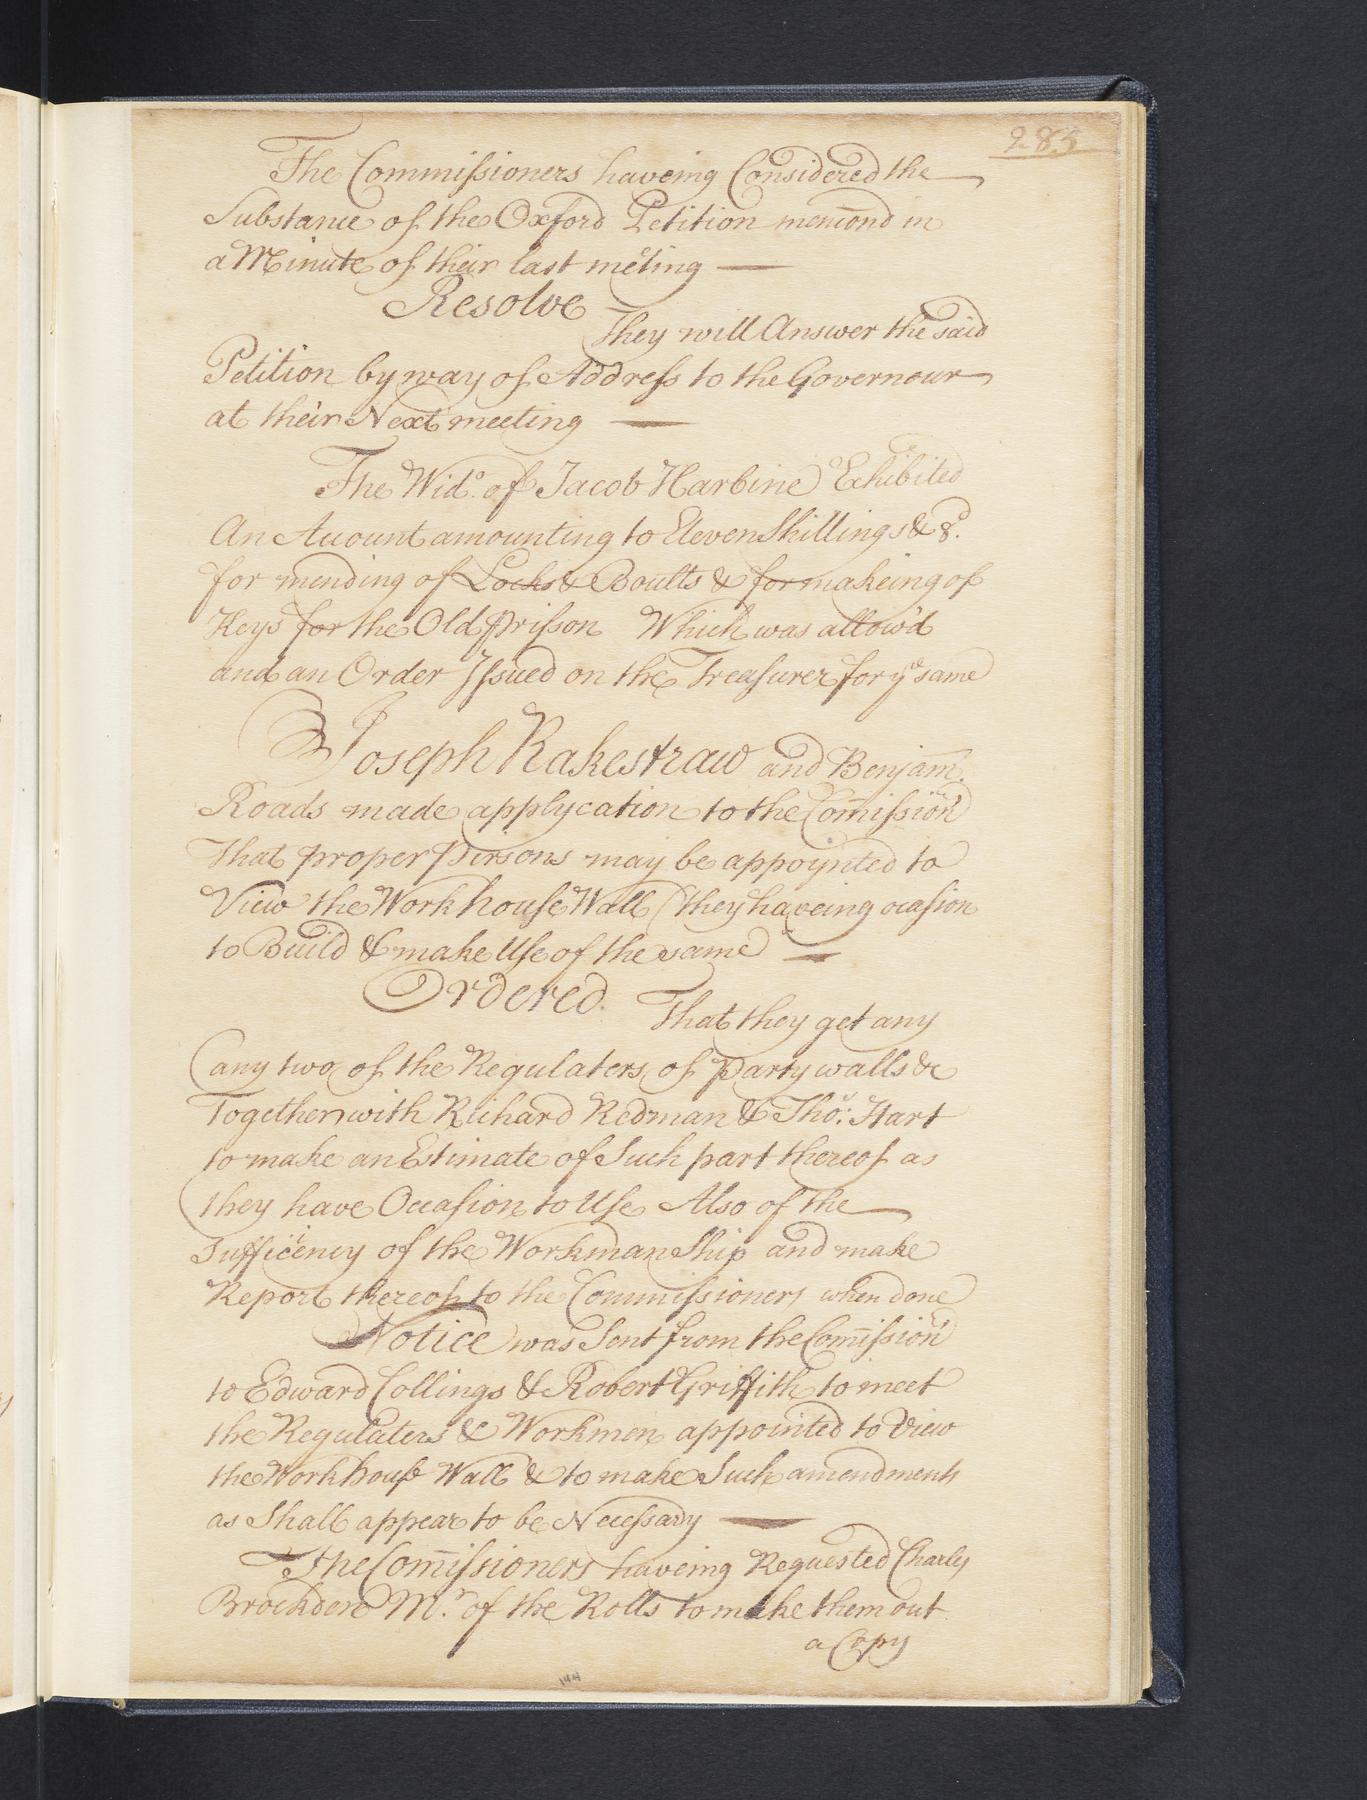 285
The Commissioners haveing Considered the
Substance of the Oxford Petition mencond in
a Minute of their last meeting —
Resolve
They will Answer the said
Petition by way of Address to the Governour
at their Next meeting —
The Widº. of Jacob Harbine Exhibited
An Account amounting to Eleven Shillings & 8d.
for mending of Locks & Boults & for makeing of
Keys for the Old Prisson Which was allow'd
and an Order Issued on the Treasurer for ye same
Joseph Rakestraw and Benjam.
Roads made applycation to the Comissionrs
That proper Persons may be appoynted to
View the Work house Wall (they haveing ocasion
to Build & make Use of the same —
Ordered.
That they get any
any two of the Regulaters of Party walls &c
Together with Richard Redman & Thos: Hart
to make an Estimate of Such part thereof as
they have Occasion to Use Also of the
Sufficency of the Workman Ship and make
Report thereof to the Commissioners when done
Notice was Sent from the Comissionrs
to Edward Collings & Robert Griffith to meet
the Regulaters & Workmen appointed to View
the Work house Wall & to make Such amendments
as Shall appear to be Necessary —
The Comissioners haveing Requested Charles
Brockden Mr. of the Rolls to make them out
a Copy
144